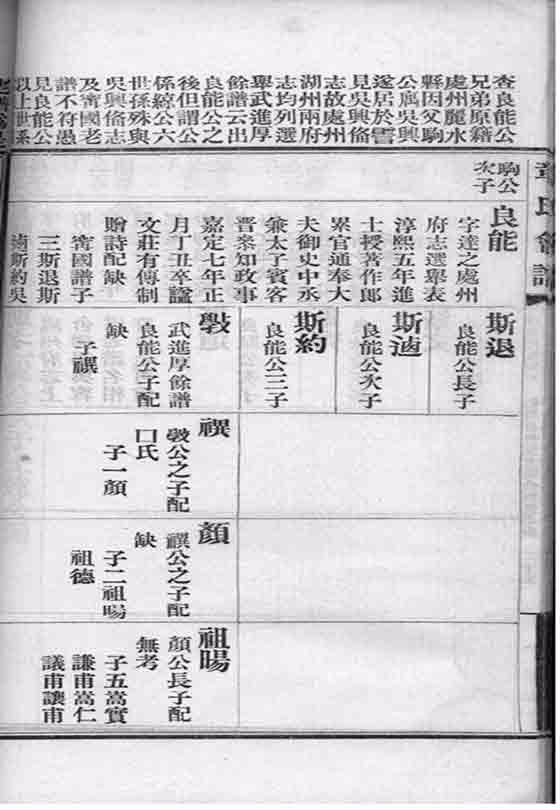 章氏會譜
查良能公
兄弟原籍
處州麗水
縣因父駒
公寓吳興
遂居於霅
見吳興俻
志故處州
湖州兩府
志均列選
舉武進厚
餘譜云出
良能公之
後但謂公
係綡公六
世孫殊與
吳興俻志
及甯國老
譜不符愚
見良能公
以上世系
駒公
次子
良能
字達之處州
府志選舉表
淳熙五年進
士授著作郎
累官通奉大
夫御史中丞
兼太子賓客
晉叅知政事
嘉定七年正
月丁丑卒諡
文莊有傳制
贈詩配缺
甯國譜子
三斯退斯
斯約吳
斯退
良能公長子
斯
良能公次子
斯約
良能公三子
斅
武進厚餘譜
良能公子配
缺
子禩
禩
斅公之子配
口氏
子一顏
顏
禩公之子配
缺
子二祖暘
祖德
祖暘
顏公長子配
無考
子五嵩實
謙甫嵩仁
議甫讓甫